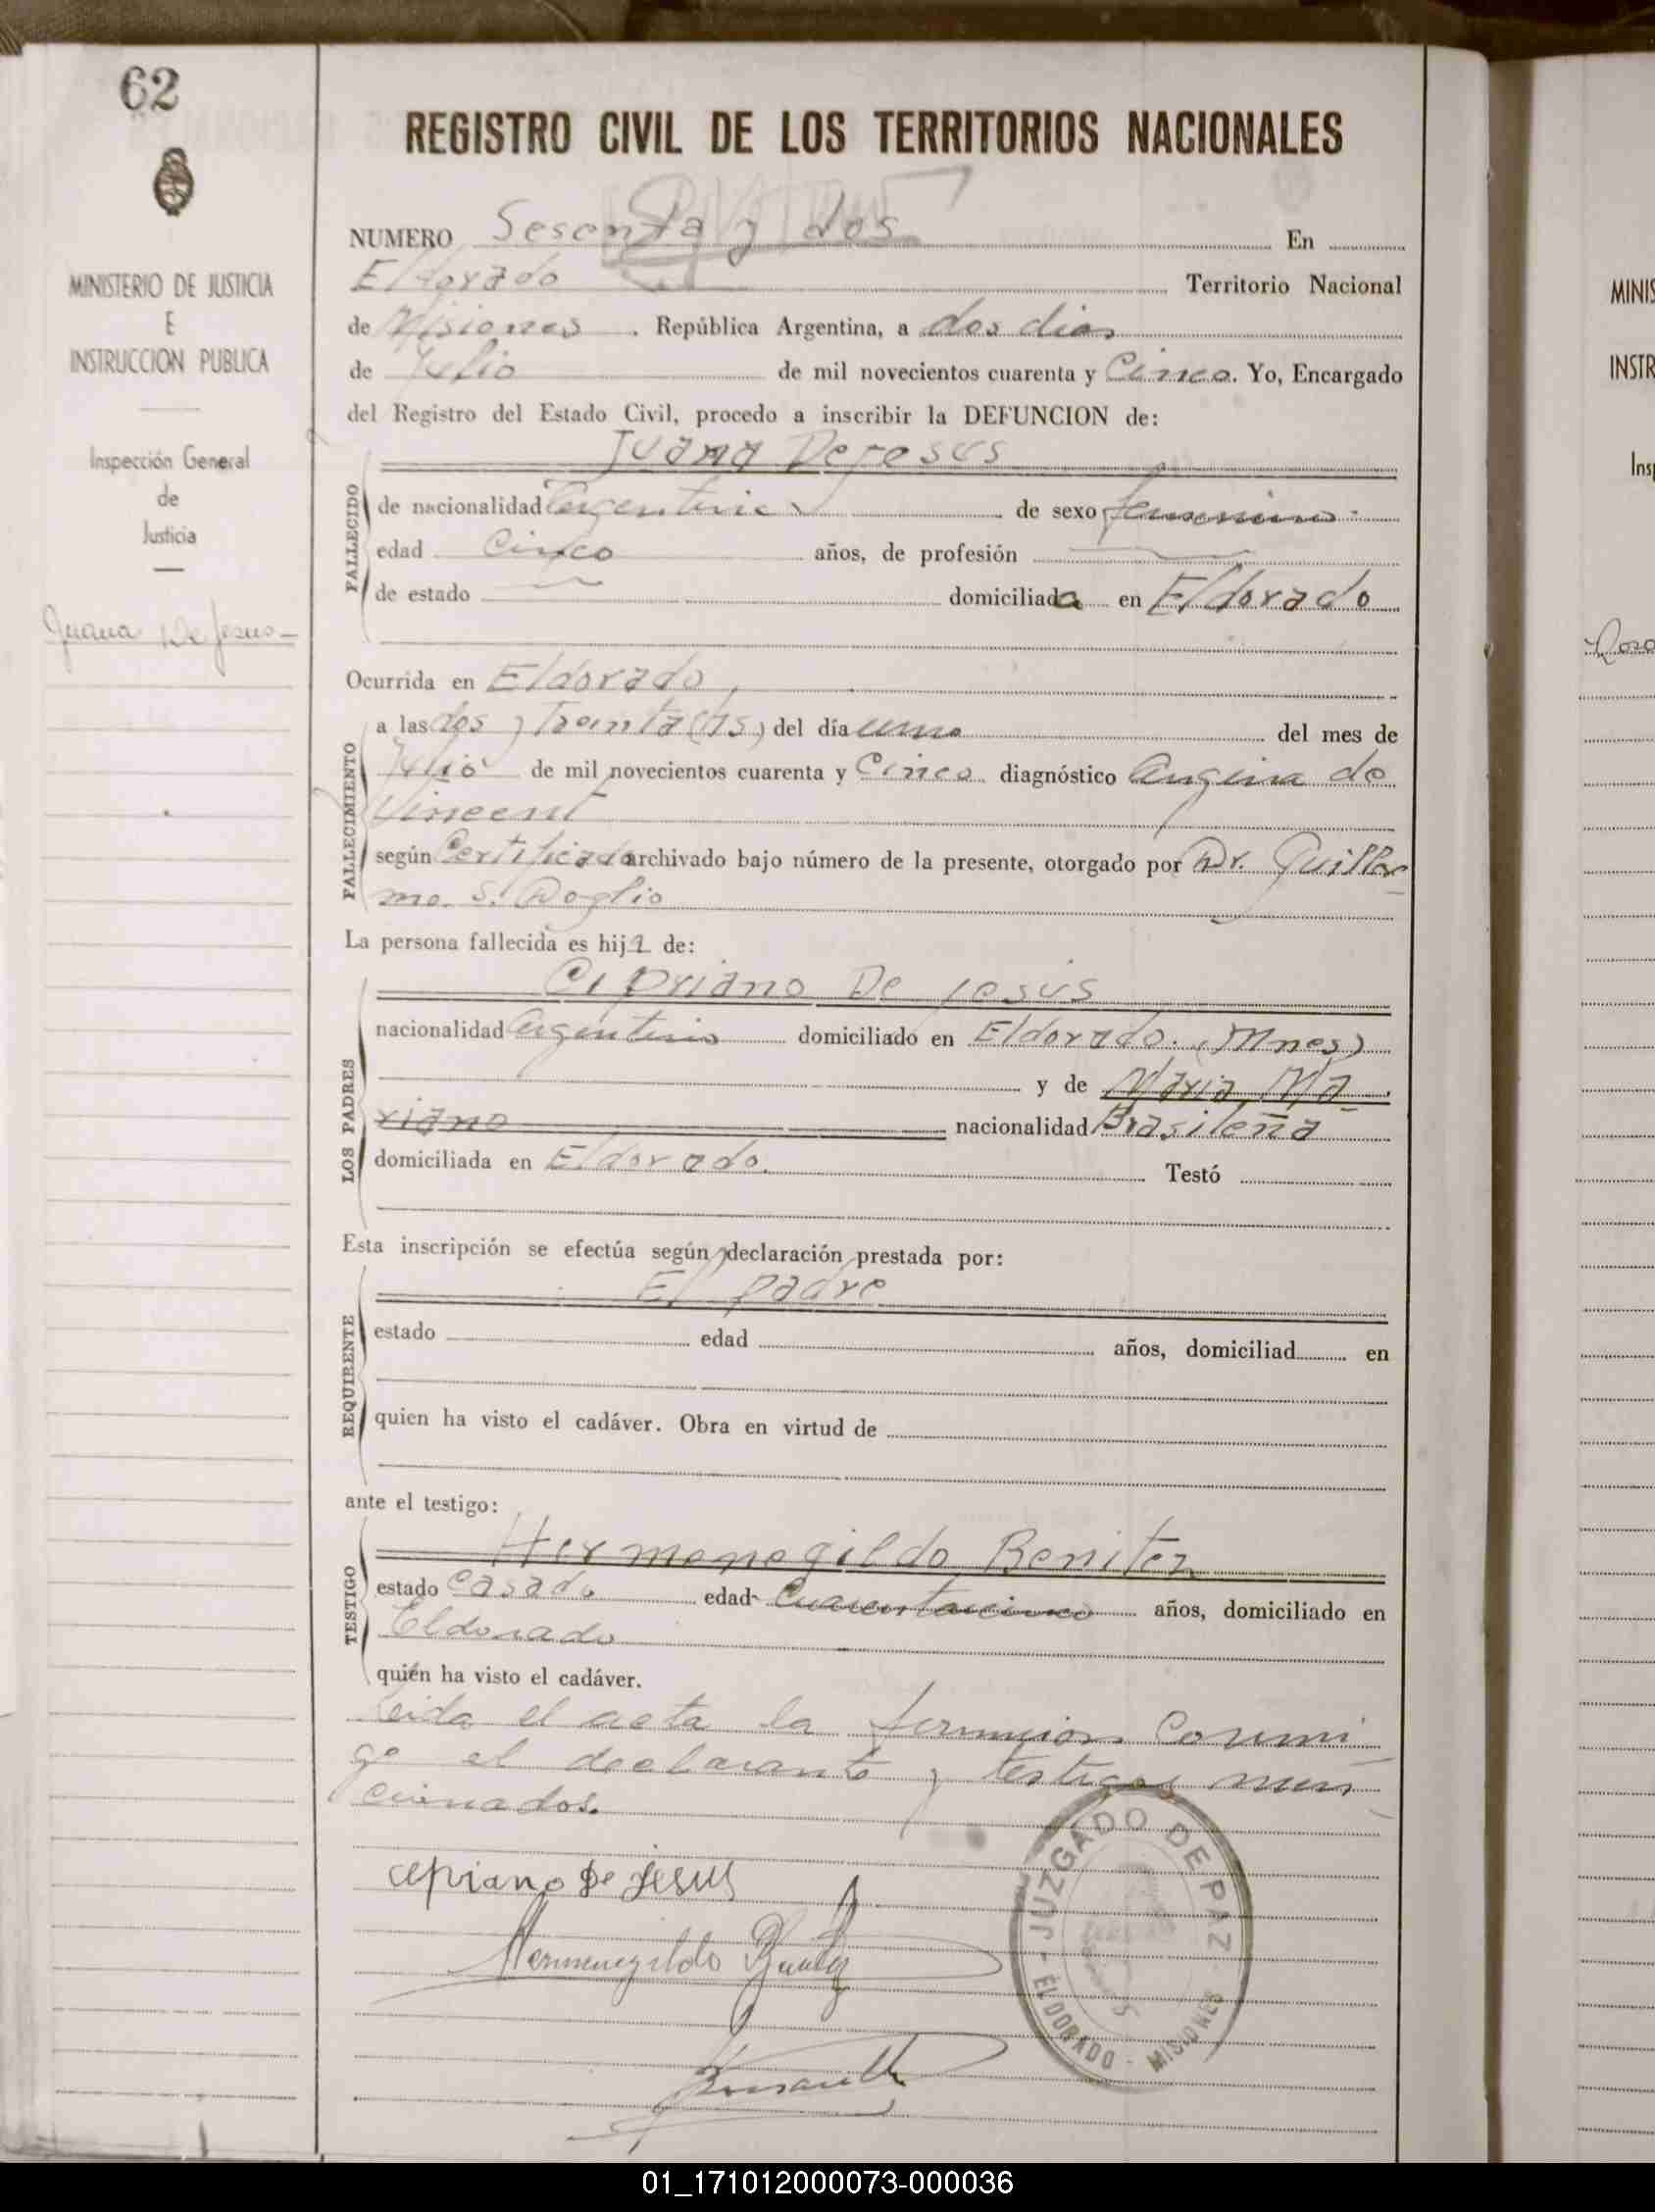 62
MINISTERIO DE JUSTICIA
E
INSTRUCCION PUBLICA
Inspección General
de
Justicia
Juana De Jesus
REGISTRO CIVIL DE LOS TERRITORIOS NACIONALES
NUMERO Sesenta y dos En
Eldorado Territorio Nacional
de Misiones. República Argentina, a dos dias
de Julio de mil novecientos cuarenta y Cinco. Yo, Encargado
del Registro del Estado Civil, procedo a inscribir la DEFUNCION de:
Juana De Jesus
FALLECIDO
de nacionalidad argentina de sexo femenino
edad Cinco años, de profesión
de estado domiciliada en Eldorado
Ocurrida en Eldorado
FALLECIMIENTO
a las dos y treinta (hs) del día uno del mes de
Julio de mil novecientos cuarenta y Cinco diagnóstico angina de
Vincent
según Certificado archivado bajo número de la presente, otorgado por Dr. Guiller
mo. S. Doglio
La persona fallecida es hija de:
Cipriano De Jesús
LOS PADRES
nacionalidad argentino domiciliado en Eldorado. (Mnes)
y de Maria Ma
riano nacionalidad Brasileña
domiciliada en Eldorado. Testó
Esta inscripción se efectúa según declaración prestada por:
El padre
REQUIRENTE
estado edad años, domiciliad en
quien ha visto el cadáver. Obra en virtud de
ante el testigo:
Hermenegildo Benitez
TESTIGO
estado Casado edad Cuarenta cinco años, domiciliado en
Eldorado
quién ha visto el cadáver.
Leida el acta la firman Conmi
go el declarante y testigos men
cionados.
Cipriano De Jesus
Hermenegildo Benitez
JUZGADO DE PAZ
ELDORADO - MISIONES
MINIS
INSTR
Ins
01_171012000073-000036